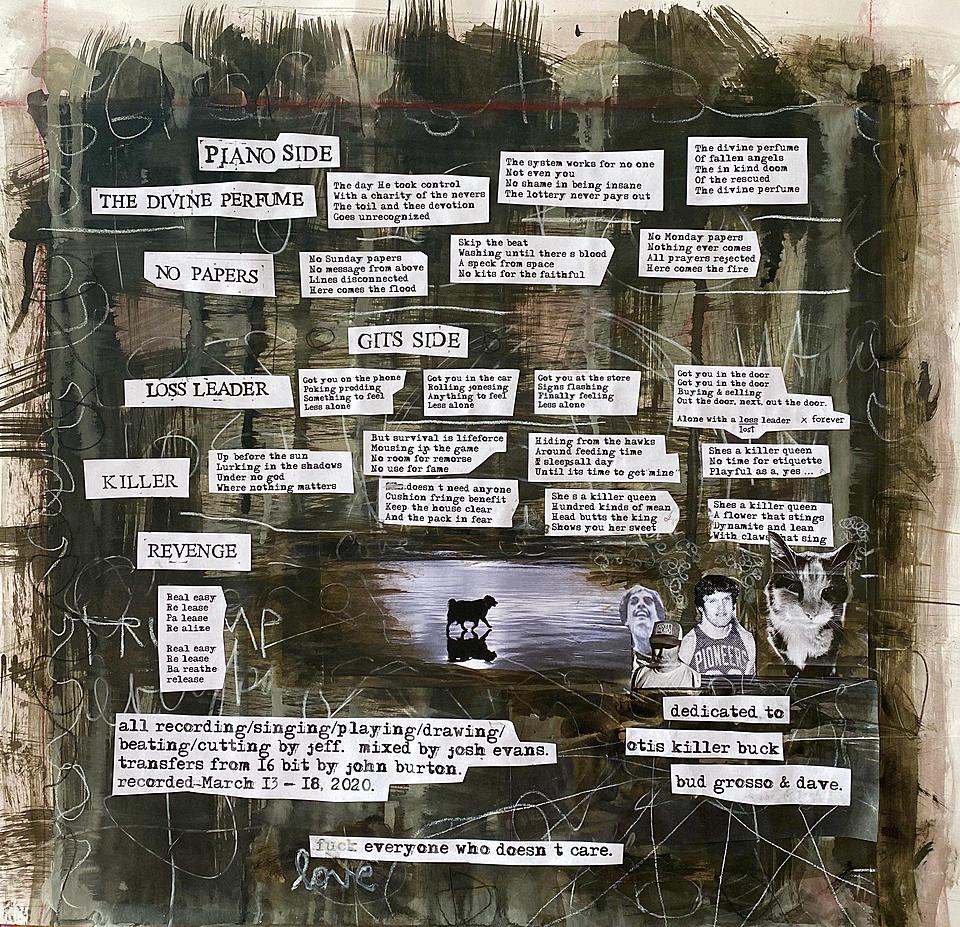 PIANO SIDE
THE DIVINE PERFUME
The day He took control
With a charity of the nevers
The toil and thee devotion
Goes unrecognized
The system works for no one
Not even you
No shame in being insane
The lottery never pays out
The divine perfume
Of fallen angels
The in kind doom
Of the rescued
The divine perfume
NO PAPERS
No Sunday papers
No message from above
Lines disconnected
Here comes the flood
Skip the beat
Washing until there s blood
A speck from space
No kits for the faithful
No Monday papers
Nothing ever comes
All prayers rejected
Here comes the fire
GITS SIDE
LOSS LEADER
Got you on the phone
Poking prodding
Something to feel
Less alone
Got you in the car
Rolling jonesing
Anything to feel
Less alone
Got you at the store
Signs flashing
Finally feeling
Less alone
Got you in the door
Got you in the door
Buying & selling
Out the door, next, out the door.
Alone with a loss leader x forever
lost
KILLER
Up before the sun
Lurking in the shadows
Under no god
Where nothing matters
But survival is lifeforce
Mousing in the game
No room for remorse
No use for fame
Hiding from the hawks
Around feeding time
& sleepsall day
Until its time to get'mine'
Shes a killer queen
No time for etiquette
Playful as a, yes ...
doesn t need anyone
Cushion fringe benefit
Keep the house clear
And the pack in fear
She s a killer queen
Hundred kinds of mean
Head butts the king
Shows you her sweet
Shes a killer queen
A flower that stings
Dynamite and lean
With claws that sing
REVENGE
Real easy
Re lease
Pa lease
Re alize
Real easy
Re lease
Ba reathe
release
PIONEERS
all recording/singing/playing/drawing/
beating/cutting by jeff. mixed by josh evans.
transfers from 16 bit by john burton.
recorded-March 13 - 18, 2020.
dedicated to
otis killer buck
bud grosso & dave.
fuck everyone who doesn t care.
love